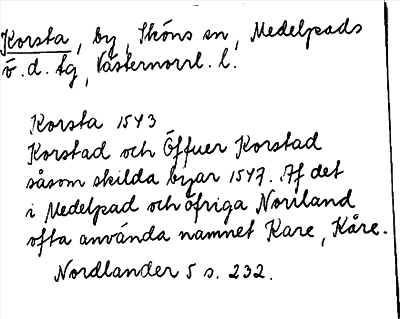 Korsta, by, Sköns sn, Medelpads
ö. d. tg, Västernorrl. l.
Korsta 1543
Korstad och Öffuer Korstad
såsom skilda byar 1547. Af det
i Medelpad och öfriga Norrland
ofta använda namnet Kare, Kåre.
Nordlander 5 s. 232.